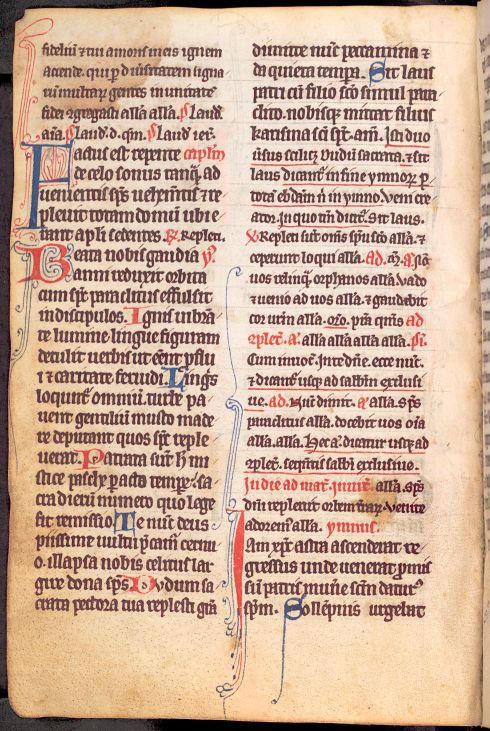 fidelium & tui amoris in eis ignem
accende. qui per diuersitatem ligna
rum multarum gentes in unitate
fidei congregasti alla alla. ps laud.
añ. ps laud. d. qm. ps laud. ierl.
Factus est repente caplm
de celo sonus tanq̃ ad
uenientis sp̃s uehem̃tis & re
pleuit totam domũ ubi e
rant apli sedentes. R. Repleti.
Beata nobis gaudia ỹ.
anni reduxit orbita
cum sp̃s paraclitus effulsit
in discipulos. Ignis uibrã
te lumine lingue figuram
detulit uerbis ut eẽnt p̃flu
i & caritate feruidi. Linguis
loquunt̃ omniũ. turbe pa
uent gentiliũ musto made
re deputant quos sp̃s reple
uerat. Patrata sunt hec mi
stice pasche pacto tempore sa
cra dierũ numero quo lege
fit remissio. Te nunc deus
piissime uultu p̃camur cernu
o. illapsa nobis celitus lar
gire dona sp̃s. Dudum sa
crata pectora tua replesti grã
dimitte nũc peccamina &
da quieta tempora. Sit laus
patri cũ filio sc̃o simul para
clito. nobisque mittat filius
karisma sc̃i sp̃s. am̃. Isti duo
ũsus scilicet Dudũ sacrata. & sit
laus dicant̃ in fine ymnor̃ p
totã ebdam̃ ñ in ymno. Veni cre
ator. in quo tm̃ dicit̃. Sit laus.
V. Repleti sunt om̃s sp̃u sc̃o alla. &
ceperunt loqui alla. Ad. m̃. a. nõ
uos relinquã orphanos alla. uado
& uenio ad uos alla. & gaudebit
cor ur̃m alla. or̃o. pr̃a quĩs Ad
cplet̃. a. alla alla alla alla. ps.
Cum inuoc̃. In te dñe. ecce nũc.
& dicant̃ usq̃ ad sabb̃m exclusi
ue. ad. Nũc dimit̃. a. alla. sp̃s
paraclitus alla. docebit uos oĩa
alla. alla. Hec a. dicatur usq̃ ad
cplet̃. sequentis sabb̃i exclusiue.
In die ad mat̃. inuit̃. alla. sp̃s
dñi repleuit orbem terrar̃. Venite
adorem̃. alla. ymnus.
Iam xp̃c astra ascenderat re
gressus unde uenerat. p̃mis
sũ patris munere sc̃m daturus
sp̃m. Sollempnis urgebat